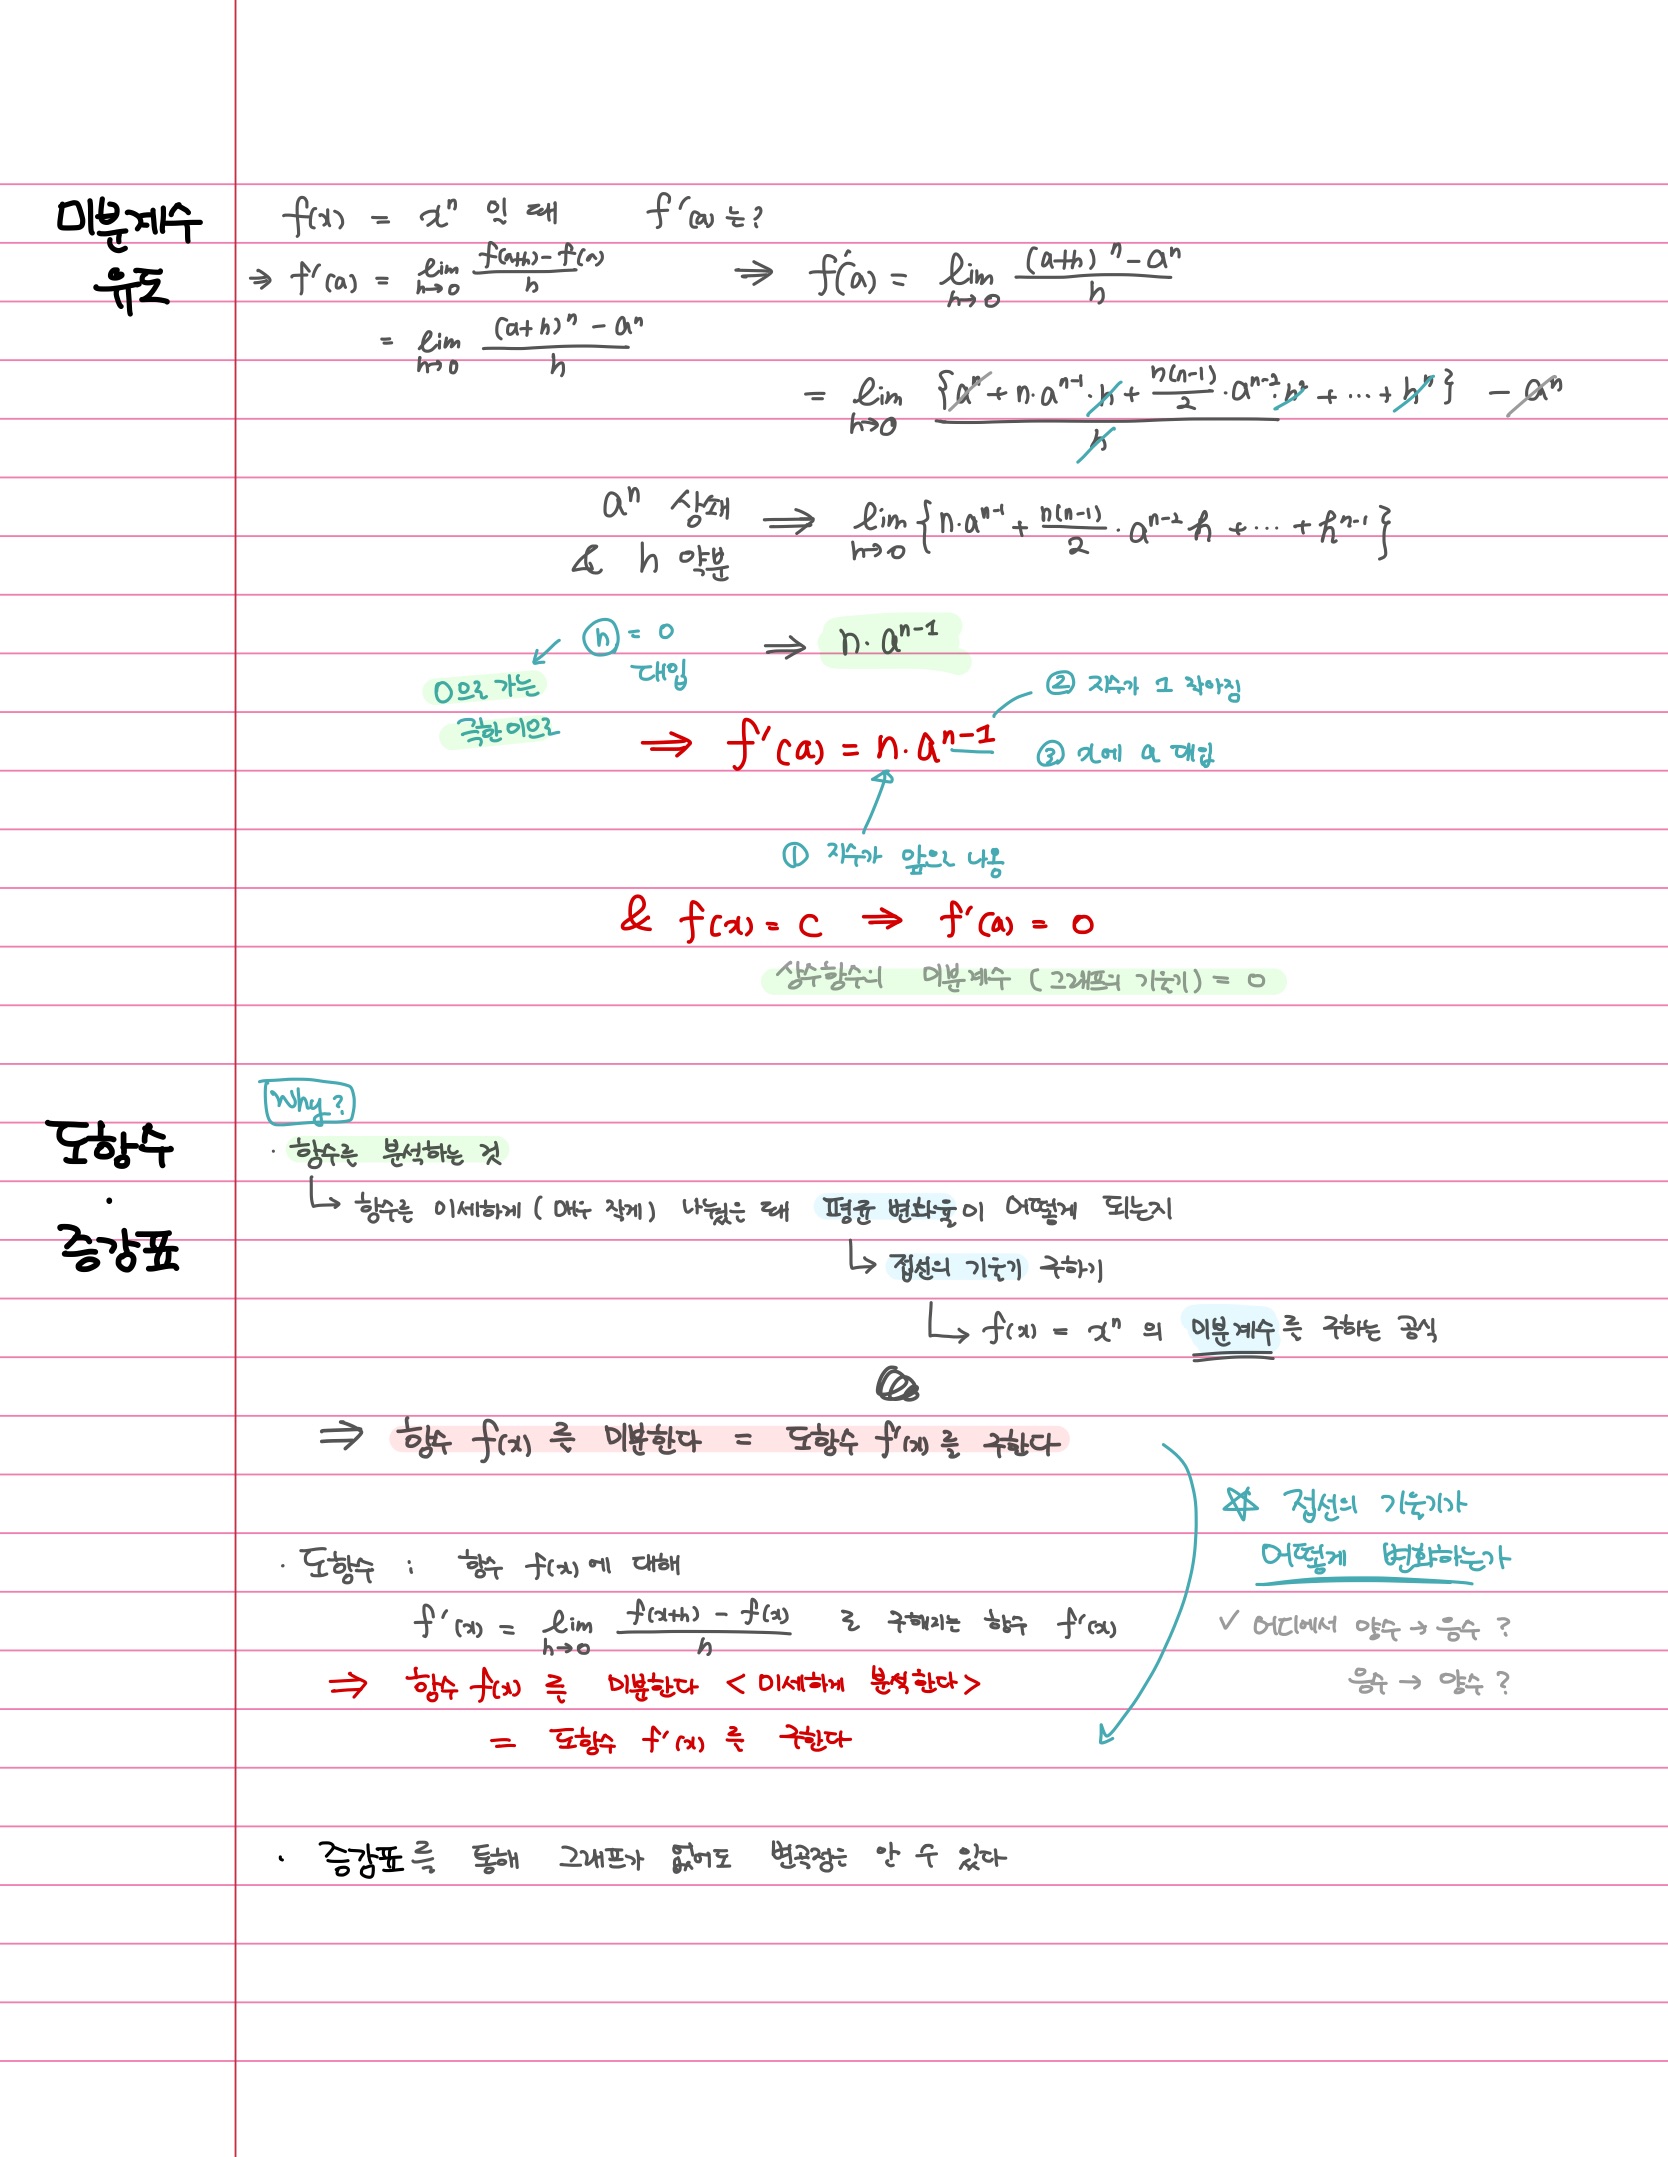 미분계수
유도
f(x) = xⁿ 일 때 f'(a)는?
⇒ f'(a) = lim h→0 (f(a+h) - f(a))/h
= lim h→0 ((a+h)ⁿ - aⁿ)/h
⇒ f'(a) = lim h→0 ((a+h)ⁿ - aⁿ)/h
= lim h→0 ({aⁿ + n·aⁿ⁻¹·h + n(n-1)/2·aⁿ⁻²·h² + ⋯ + hⁿ} - aⁿ)/h
aⁿ 상쇄
& h 약분
⇒ lim h→0 {n·aⁿ⁻¹ + n(n-1)/2·aⁿ⁻²h + ⋯ + hⁿ⁻¹}
h = 0
대입
0으로 가는
극한이므로
⇒ n·aⁿ⁻¹
② 지수가 1 작아짐
⇒ f'(a) = n·aⁿ⁻¹
③ x에 a 대입
① 지수가 앞으로 나옴
& f(x) = c ⇒ f'(a) = 0
상수함수의 미분계수 (그래프의 기울기) = 0
도함수
·
증감표
Why?
· 함수를 분석하는 것
↳ 함수를 미세하게 (매우 작게) 나눴을 때 평균 변화율이 어떻게 되는지
↳ 접선의 기울기 구하기
↳ f(x) = xⁿ 의 미분계수를 구하는 공식
⇒ 함수 f(x)를 미분한다 = 도함수 f'(x)를 구한다
☆ 접선의 기울기가
어떻게 변화하는가
✓ 어디에서 양수 → 음수?
음수 → 양수?
· 도함수 : 함수 f(x)에 대해
f'(x) = lim h→0 (f(x+h) - f(x))/h 로 구해지는 함수 f'(x)
⇒ 함수 f(x)를 미분한다 <미세하게 분석한다>
= 도함수 f'(x)를 구한다
· 증감표를 통해 그래프가 없어도 변곡점을 알 수 있다